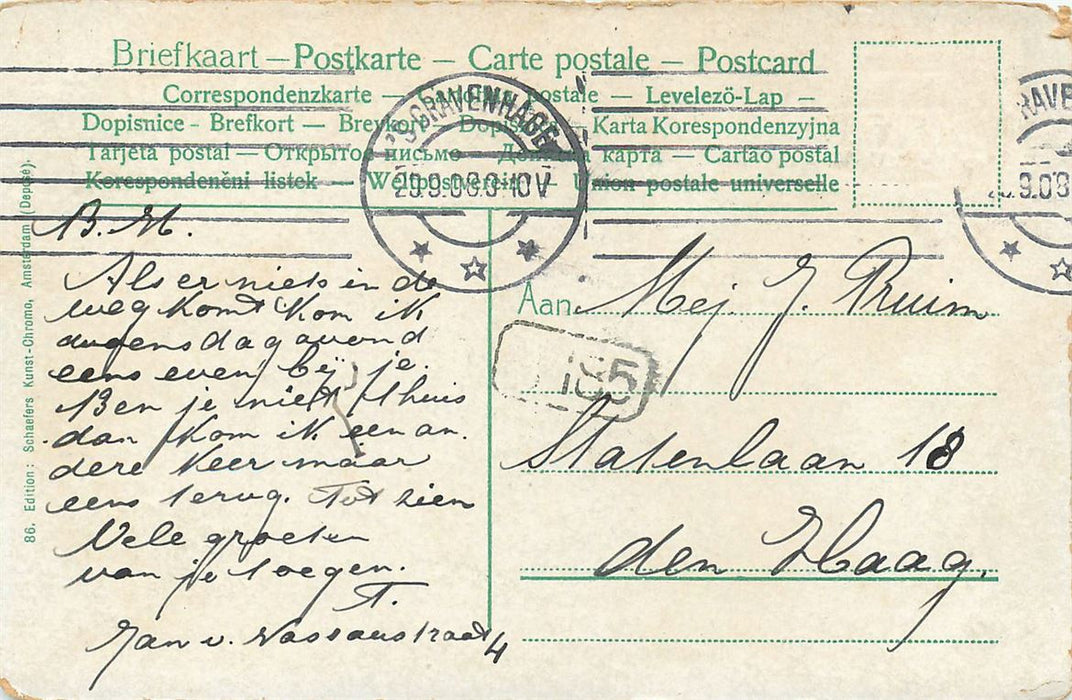 Briefkaart — Postkarte — Carte postale — Postcard
Correspondenzkarte — postale — Levelezö-Lap —
Dopisnice - Brefkort — Karta Korespondenzyjna
Tarjeta postal — Открытое письмо — карта — Cartão postal
Korespondenčni listek — — Union postale universelle
'S-GRAVENHAGE
29.9.08.9-10V
RAVEN
.9.08
B. M.
Als er niets in de
weg komt kom ik
avond
eens even bij je.
Ben je niet thuis
dan kom ik een an.
dere keer maar
eens terug. Tot zien
Vele groeten
van je
T.
Jan v. Nassaustraat 4
Aan Mej. J. Pruim
185
Statenlaan 18
den Haag.
86. Edition: Schaefers Kunst-Chromo, Amsterdam (Deposé).